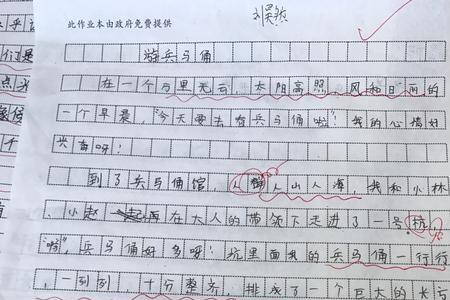 此作业本由政府免费提供
游兵马俑
在一个万里无云,太阳高照,风和日丽的
一个早晨,“今天要去看兵马俑啦!”我的心情好
兴奋呀!
到了兵马俑馆,人山人海,我和小林
、小赵一起在大人的带领下走进了一号坑,
“啊,兵马俑好多呀!坑里面的兵马俑一行行
,一列列,十分整齐,排成了一个巨大的长方